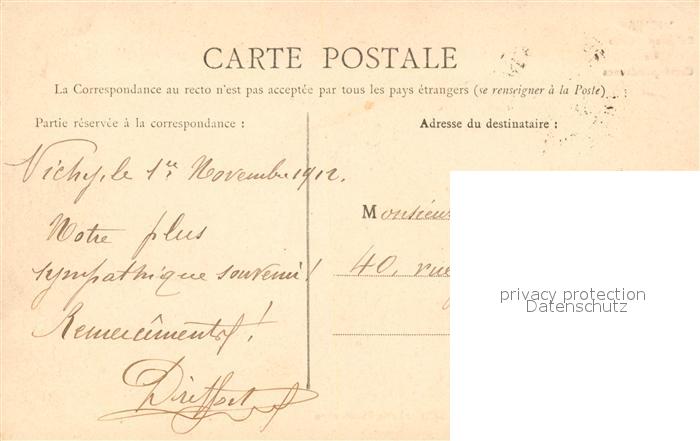 CARTE POSTALE
La Correspondance au recto n'est pas acceptée par tous les pays étrangers (se renseigner à la Poste)
Partie réservée à la correspondance :
Adresse du destinataire :
Vichy, le 1er Novembre 1912.
Notre plus
sympathique souvenir !
Remercîments !
Monsieur
40, rue
privacy protection
Datenschutz